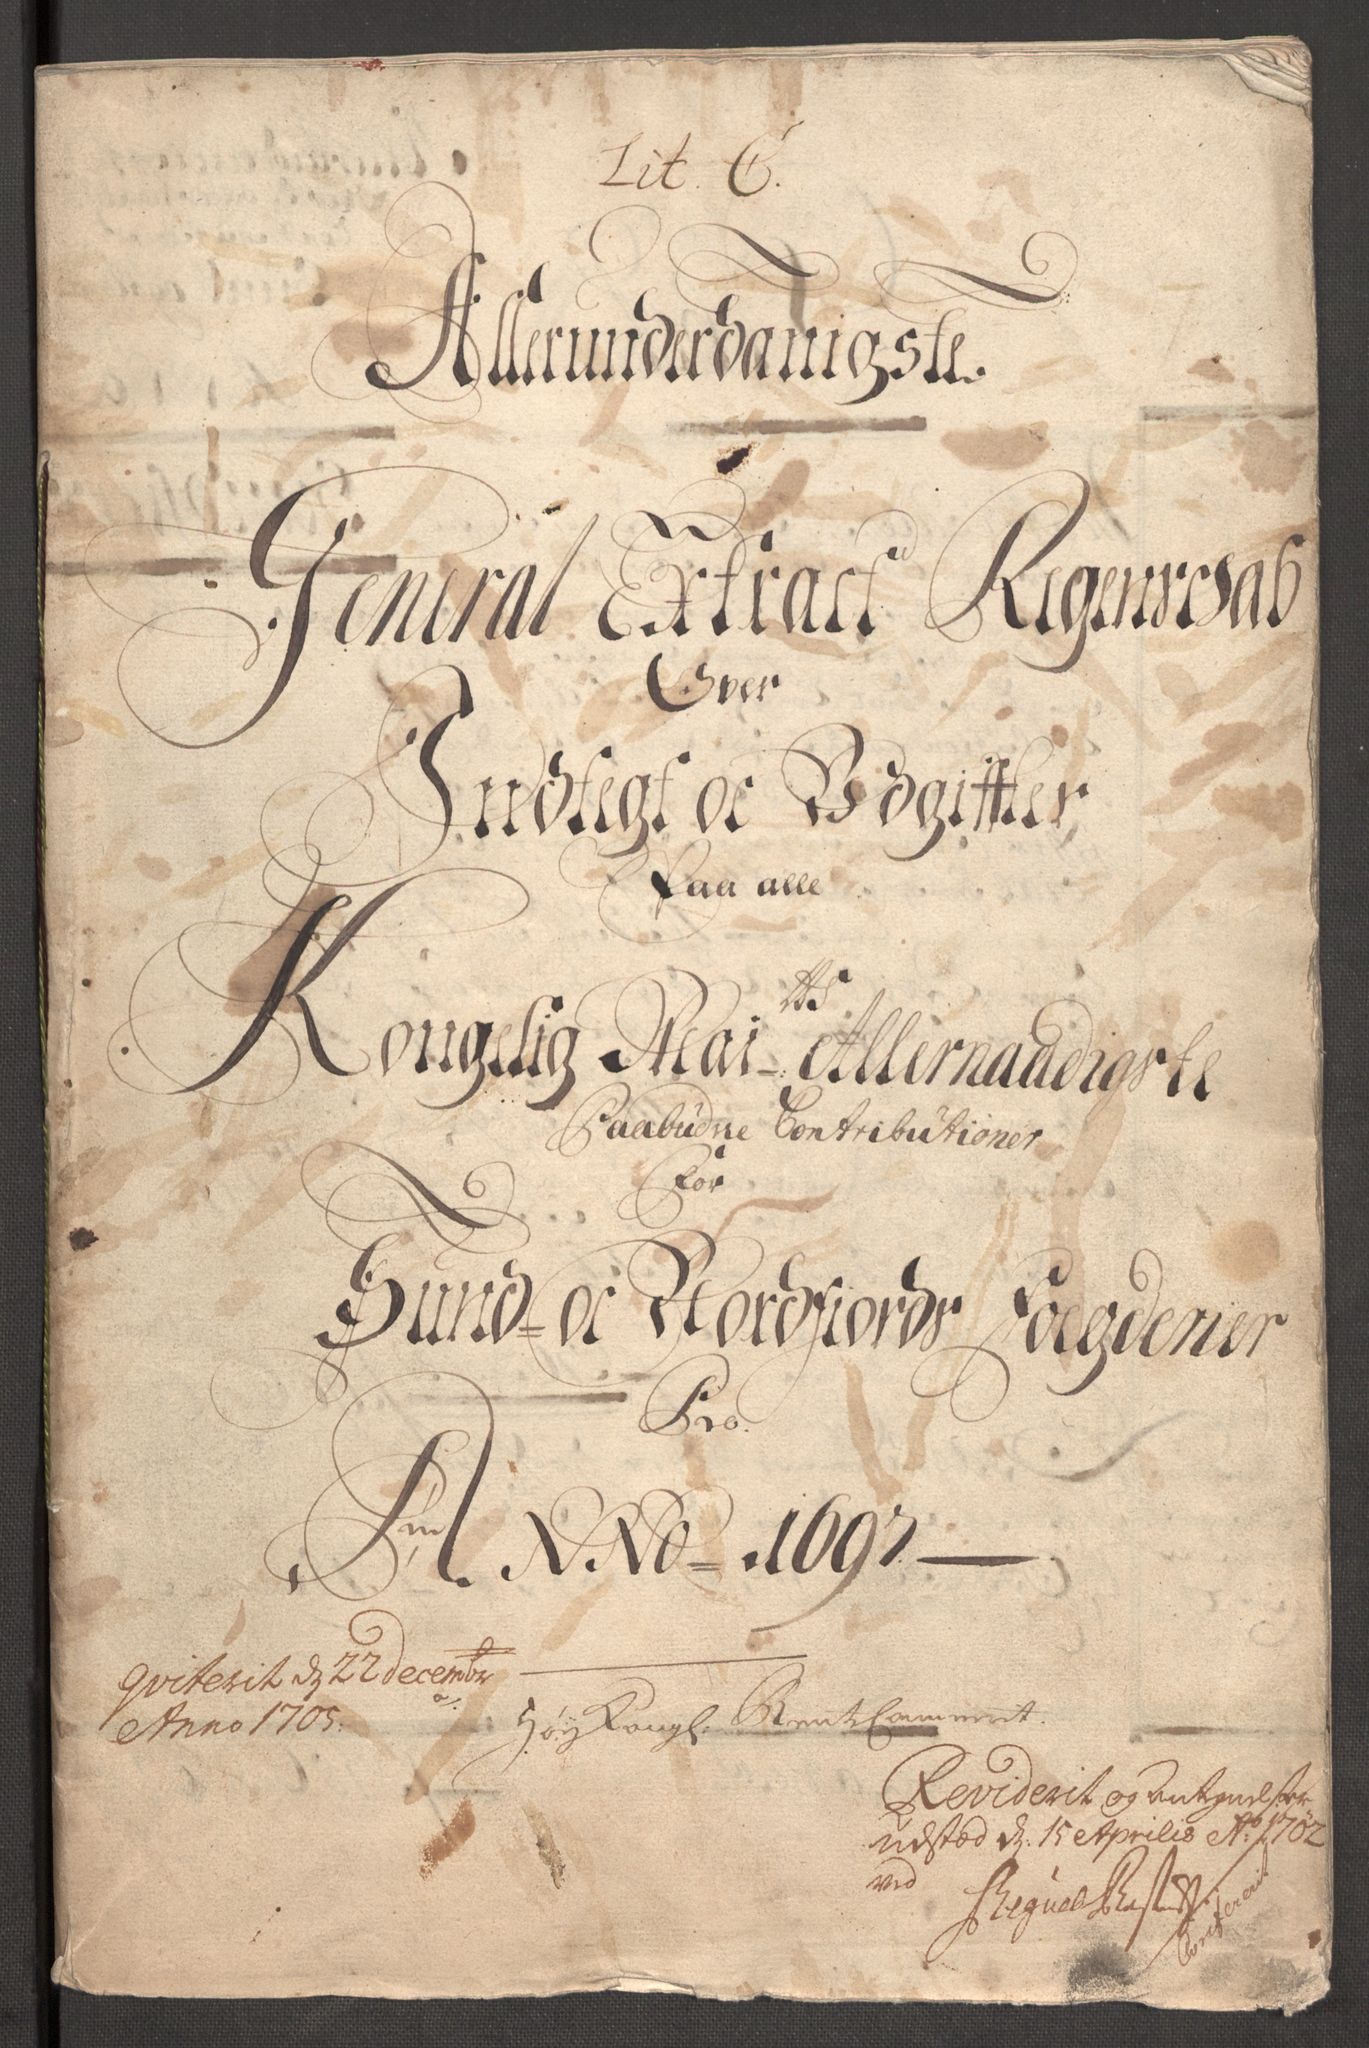 Lit. C.
Allerunderdanigste
General Extract Regenschab
Over
Indtegt oc Udgiffter
Paa alle
Kongelig Mai.tts Allernaadigste
Paabudne Contributioner
For
Sund- oc Nordfiords Foegderier
Pro
ANNO 1697
qviterit d 22 decembr
Anno 1705.
Høy Kongl. Rent Cammerit.
Reviderit og antegnelser
udstæd d. 15 Aprilis Ao. 1702
ved
Confererit